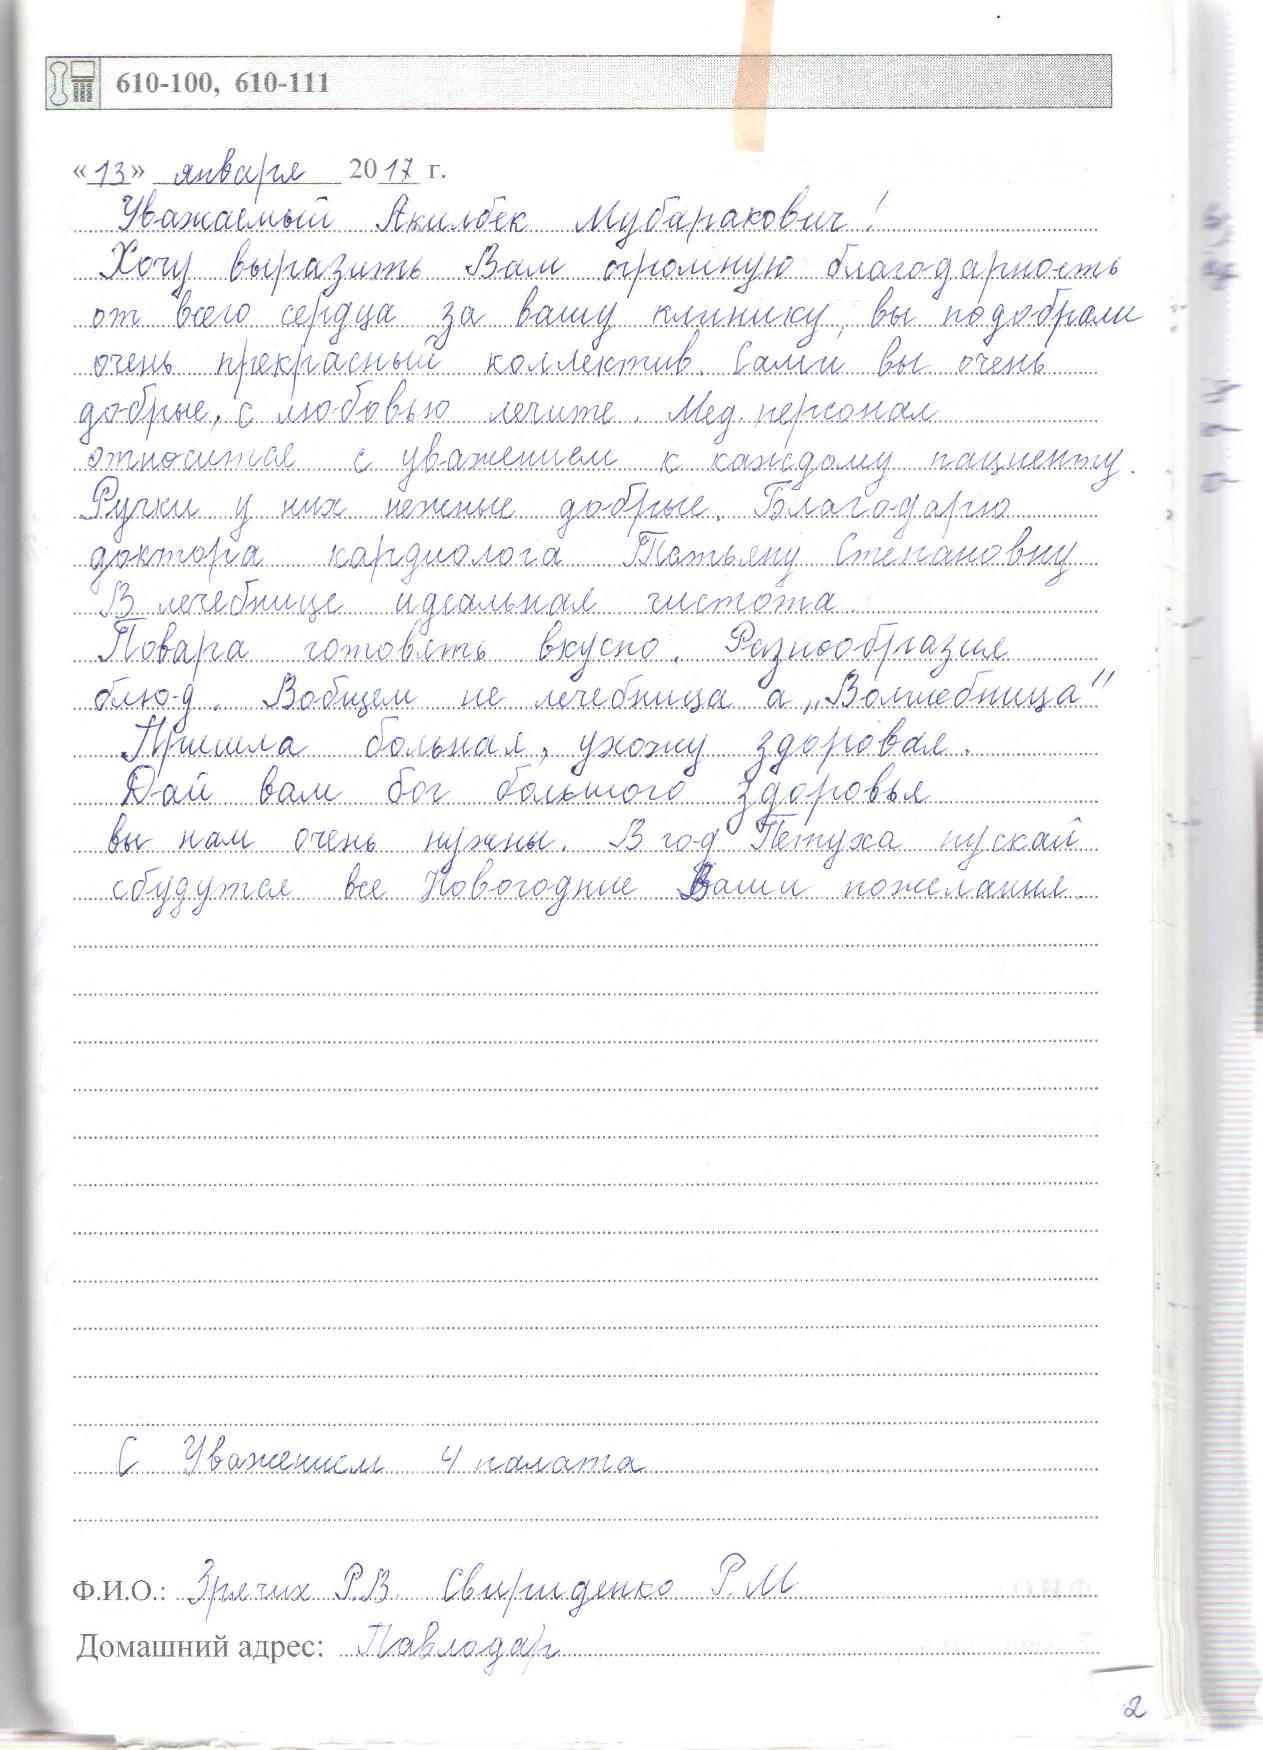 610-100, 610-111
«13» января 2017 г.
Уважаемый Акилбек Мубаракович!
Хочу выразить Вам огромную благодарность
от всего сердца за вашу клинику, вы подобрали
очень прекрасный коллектив. Сами вы очень
добрые, с любовью лечите. Мед. персонал
относится с уважением к каждому пациенту.
Ручки у них нежные добрые. Благодарю
доктора кардиолога Татьяну Степановну
В лечебнице идеальная чистота
Повара готовять вкусно. Разнообразия
блюд. Вобщем не лечебница а „Волшебница"
Пришла больная, ухожу здоровая.
Дай вам бог большого здоровья
вы нам очень нужны. В год Петуха пускай
сбудутся все Новогодние Ваши пожелания.
С Уважением 4 палата
Ф.И.О.: Зрячих Р.В. Свириденко Р.М
Домашний адрес: Павлодар
2